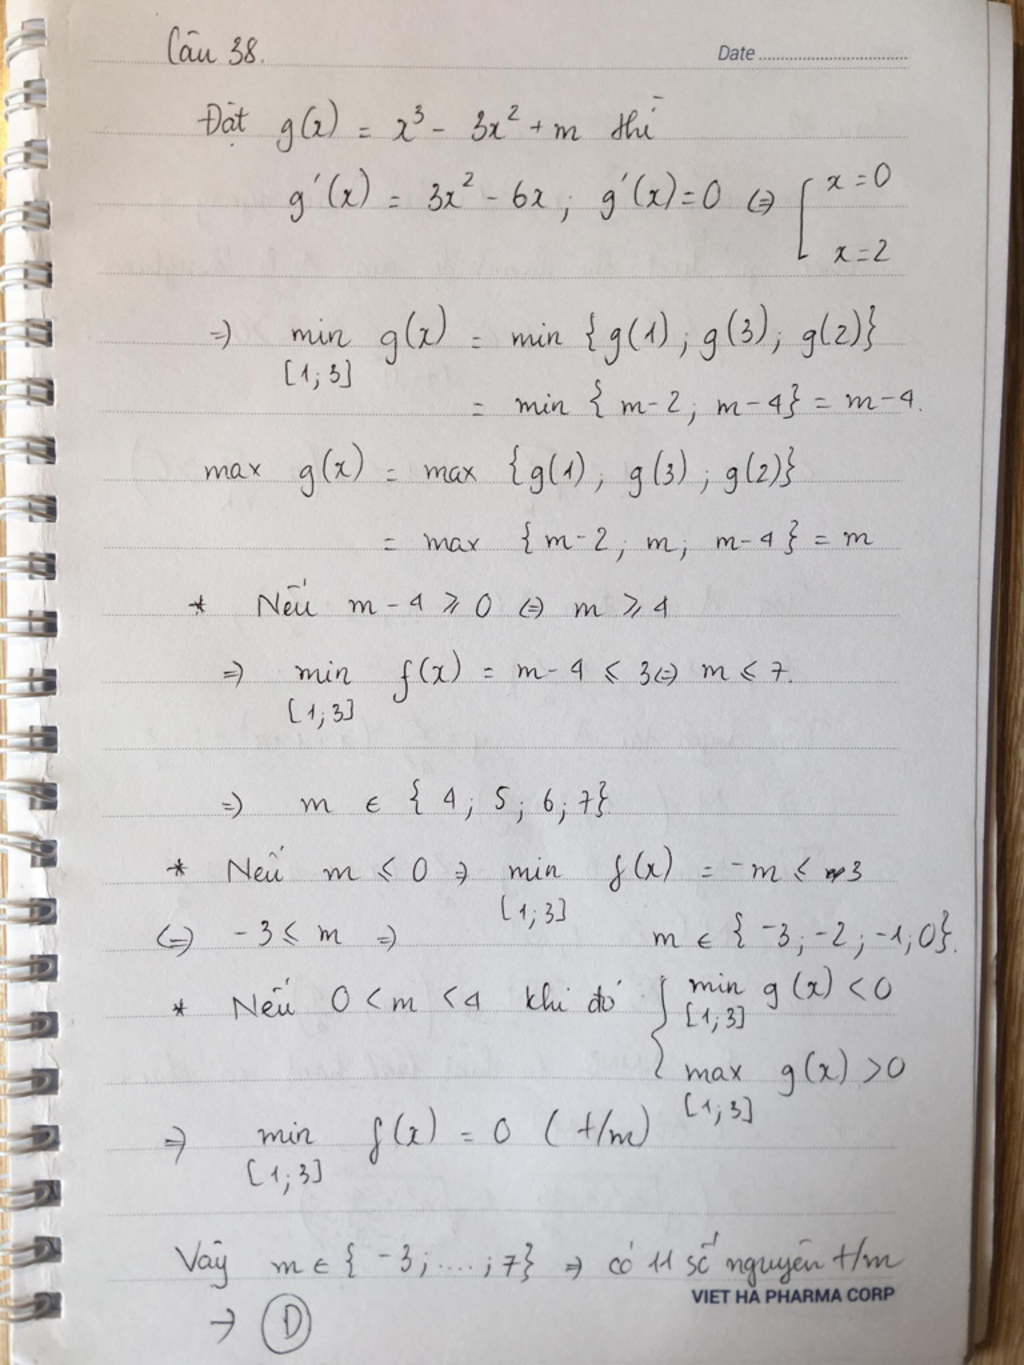 Câu 38.
Date
Đặt g(x) = x³ - 3x² + m thì
g'(x) = 3x² - 6x ; g'(x)=0 ⇔ [ x=0
x=2
⇒ min g(x) = min {g(1) ; g(3) ; g(2)}
[1;3]
= min { m-2 ; m-4} = m-4.
max g(x) = max {g(1) ; g(3) ; g(2)}
= max {m-2 ; m ; m-4} = m
* Nếu m-4 ⩾ 0 ⇔ m ⩾ 4
⇒ min f(x) = m-4 ⩽ 3 ⇔ m ⩽ 7.
[1;3]
⇒ m ∈ { 4 ; 5 ; 6 ; 7}
* Nếu m ⩽ 0 ⇒ min f(x) = -m ⩽ 3
[1;3]
⇔ -3 ⩽ m ⇒ m ∈ { -3 ; -2 ; -1 ; 0}.
* Nếu 0 < m < 4 khi đó { min g(x) < 0
[1;3]
max g(x) > 0
[1;3]
⇒ min f(x) = 0 ( t/m)
[1;3]
Vậy m ∈ { -3 ; .... ; 7} ⇒ có 11 số nguyên t/m
VIET HA PHARMA CORP
→ D